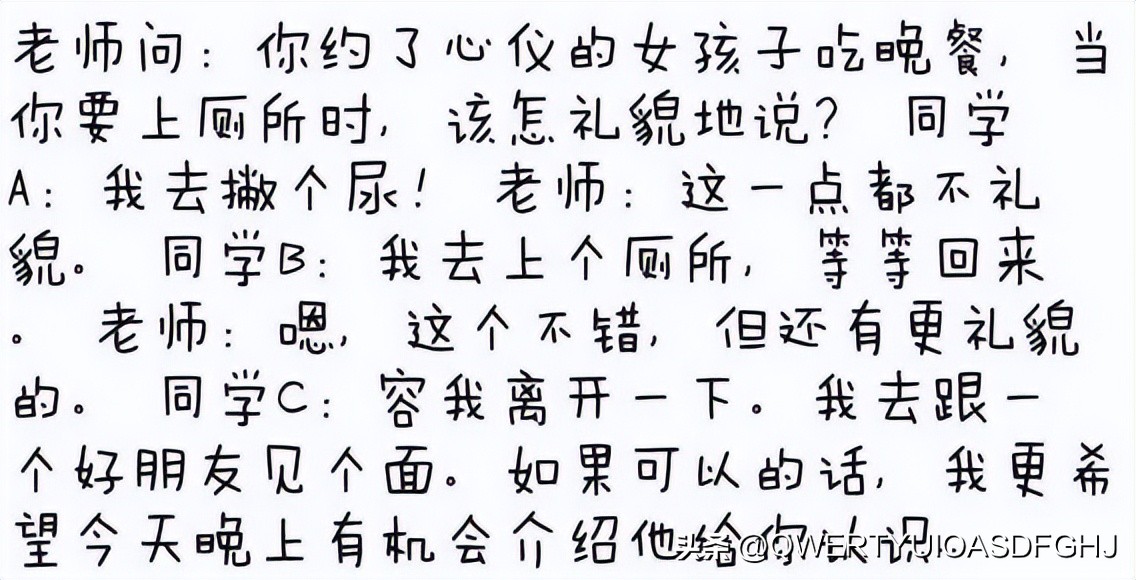 老师问：你约了心仪的女孩子吃晚餐，当
你要上厕所时，该怎礼貌地说？ 同学
A：我去撇个尿！ 老师：这一点都不礼
貌。 同学B：我去上个厕所，等等回来
。 老师：嗯，这个不错，但还有更礼貌
的。 同学C：容我离开一下。我去跟一
个好朋友见个面。如果可以的话，我更希
望今天晚上有机会介绍他给你认识
头条 @QWERTYUIOASDFGHJ